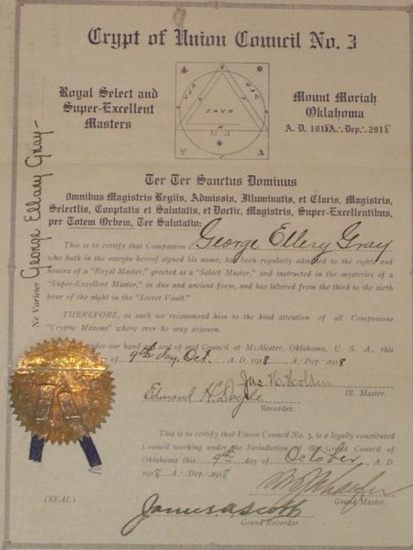 Crypt of Union Council No. 3
Royal Select and
Super-Excellent
Masters
Mount Moriah
Oklahoma
A. D. 1918 A∴ Dep∴ 2918
Ter Ter Sanctus Dominus
Omnibus Magistris Regiis, Admissis, Illuminatis, et Claris, Magistris,
Selectiis, Cooptatis et Salutatis, et Doctic, Magistris, Super-Excellentibus,
per Totem Orbem, Ter Salutatio:
This is to certify that Companion George Ellery Gray
who hath in the margin hereof signed his name, has been regularly admitted to the rights and
honors of a "Royal Master," greeted as a "Select Master," and instructed in the mysteries of a
"Super-Excellent Master," in due and ancient form, and has labored from the third to the sixth
hour of the night in the "Secret Vault."
THEREFORE, as such we recommend him to the kind attention of all Companions
"Cryptic Masons" where ever he may sojourn.
under our hand and seal of said Council at McAlester, Oklahoma, U. S. A., this
of 9th day Oct. A. D. 1918 A∴ Dep∴ 2918
Jas. H. Holden
Ill. Master.
Edmond H. Doyle
Recorder.
This is to certify that Union Council No. 3, is a legally constituted
Council working under the Jurisdiction of this Grand Council of
Oklahoma this 9th day of October, A. D.
1918 A∴ Dep∴ 2918
Grand Master.
(SEAL)
James A Scott
Grand Recorder.
Ne Varieter George Ellery Gray